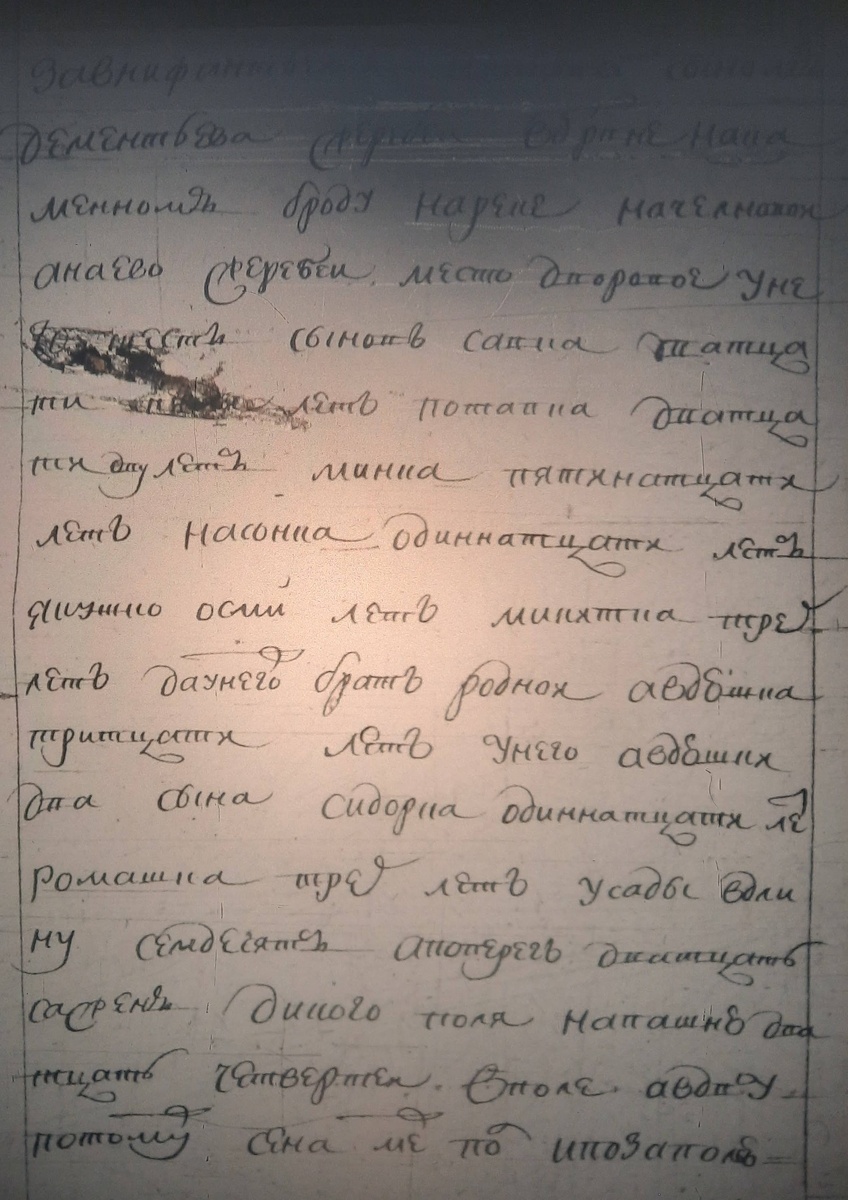 Завнифан
дементьева жеребеи вдрпне нака
менномъ броду нареке начелнаван
анаево жеребеи место дворовое уне
шесть сыновъ савка тватца
ти летъ потапка дватца
ти двулетъ минка пятинатцати
летъ насонка одиннатцати летъ
якушко осми летъ микитка трех
летъ даунего братъ роднои авдѣшка
тритцати летъ унего авдѣшки
два сына сидорка одиннатцати ле
ромашка трех летъ усадбы вдли
ну семдесятъ апоперегъ дватцать
сажень дикого поля напашнѣ два
тцать четвертеи вполе авдву
потому сена ме по ипозаполю